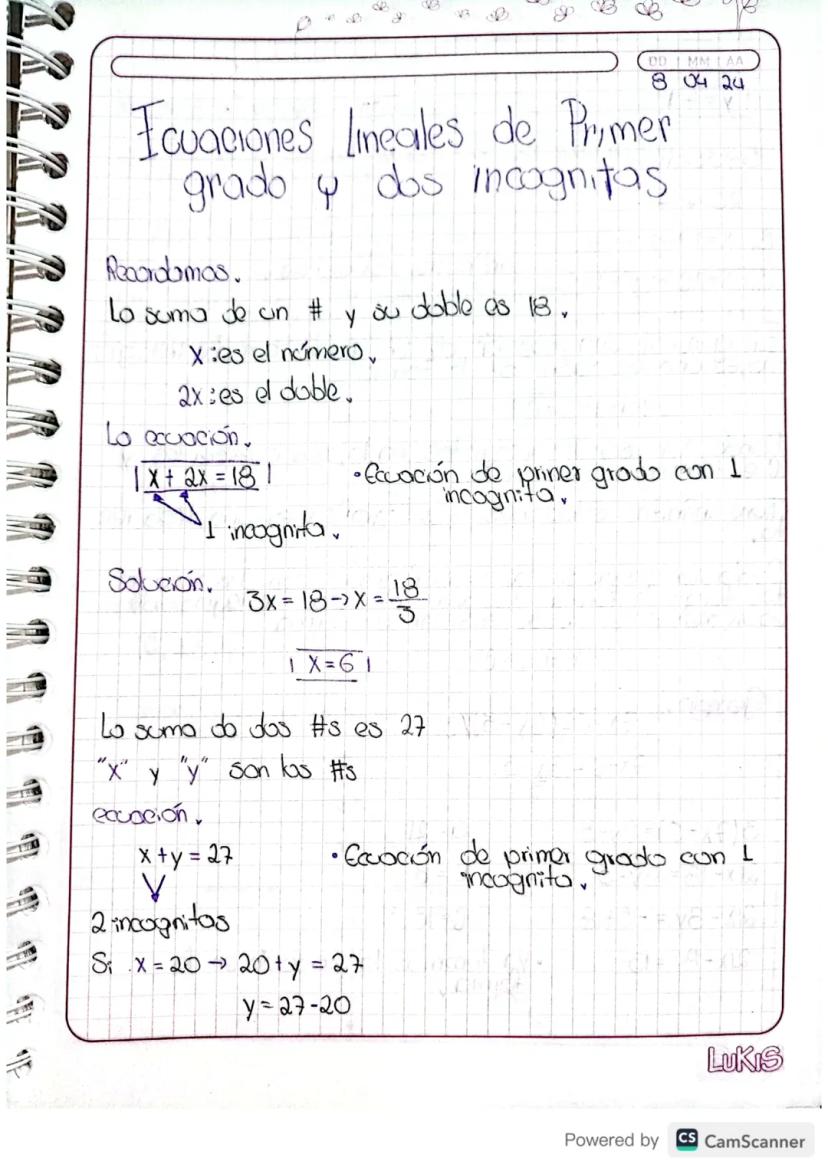 DD MM AA
8 04 24
Ecuaciones lineales de Primer
grado y dos incognitas
Recordamos.
La suma de un # y su doble es 18.
x : es el número.
2x : es el doble.
La ecuación.
x + 2x = 18
• Ecuación de primer grado con 1
incognita.
1 incognita.
Solución.
3x = 18 → x = 18/3
x = 6
La suma de dos #s es 27
"x" y "y" son los #s
ecuación.
x + y = 27
• Ecuación de primer grado con 1
incognita.
2 incognitas
Si x = 20 → 20 + y = 27
y = 27 - 20
LUKIS
Powered by CS CamScanner